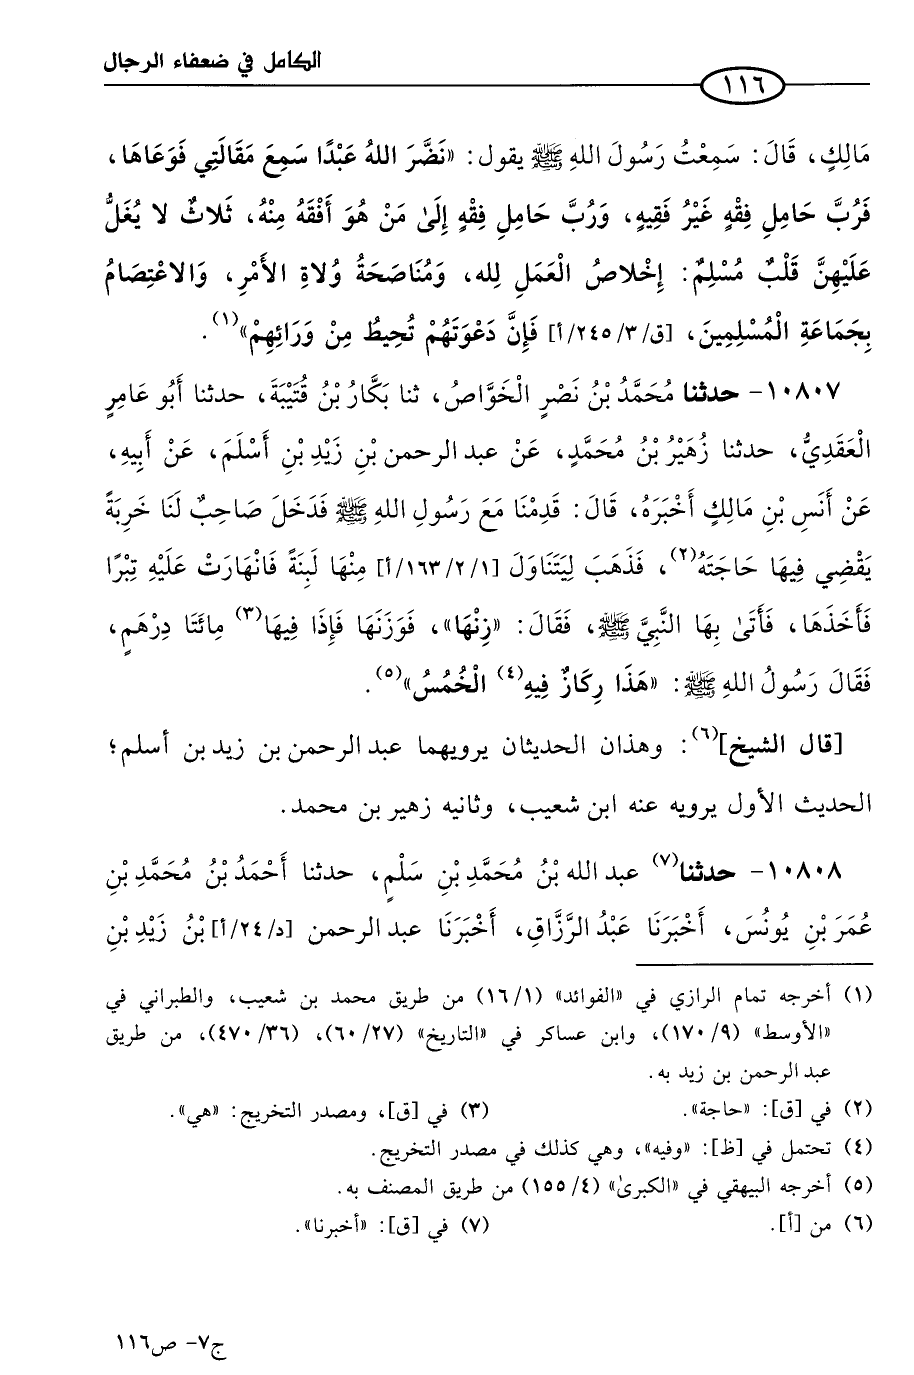 الكامل في ضعفاء الرجال
١١٦
مَالِكٍ، قَالَ: سَمِعْتُ رَسُولَ اللهِ ﷺ يقول: «نَضَّرَ اللهُ عَبْدًا سَمِعَ مَقَالَتِي فَوَعَاهَا،
فَرُبَّ حَامِلِ فِقْهٍ غَيْرُ فَقِيهٍ، وَرُبَّ حَامِلِ فِقْهٍ إِلَىٰ مَنْ هُوَ أَفْقَهُ مِنْهُ، ثَلاثٌ لا يُغَلُّ
عَلَيْهِنَّ قَلْبُ مُسْلِمٍ: إِخْلاصُ الْعَمَلِ لِله، وَمُنَاصَحَةُ وُلاةِ الأَمْرِ، وَالاعْتِصَامُ
بِجَمَاعَةِ الْمُسْلِمِينَ، [ق/٣/٢٤٥/أ] فَإِنَّ دَعْوَتَهُمْ تُحِيطُ مِنْ وَرَائِهِمْ»(١).
١٠٨٠٧- حدثنا مُحَمَّدُ بْنُ نَصْرٍ الْخَوَّاصُ، ثنا بَكَّارُ بْنُ قُتَيْبَةَ، حدثنا أَبُو عَامِرٍ
الْعَقَدِيُّ، حدثنا زُهَيْرُ بْنُ مُحَمَّدٍ، عَنْ عبد الرحمن بْنِ زَيْدِ بْنِ أَسْلَمَ، عَنْ أَبِيهِ،
عَنْ أَنَسِ بْنِ مَالِكٍ أَخْبَرَهُ، قَالَ: قَدِمْنَا مَعَ رَسُولِ اللهِ ﷺ فَدَخَلَ صَاحِبٌ لَنَا خَرِبَةً
يَقْضِي فِيهَا حَاجَتَهُ(٢)، فَذَهَبَ لِيَتَنَاوَلَ [١/٢/١٦٣/أ] مِنْهَا لَبِنَةً فَانْهَارَتْ عَلَيْهِ تِبْرًا
فَأَخَذَهَا، فَأَتَىٰ بِهَا النَّبِيَّ ﷺ، فَقَالَ: «زِنْهَا»، فَوَزَنَهَا فَإِذَا فِيهَا(٣) مِائَتَا دِرْهَمٍ،
فَقَالَ رَسُولُ اللهِ ﷺ: «هَذَا رِكَازٌ فِيهِ(٤) الْخُمُسُ»(٥).
[قال الشيخ](٦): وهذان الحديثان يرويهما عبد الرحمن بن زيد بن أسلم؛
الحديث الأول يرويه عنه ابن شعيب، وثانيه زهير بن محمد.
١٠٨٠٨- حدثنا(٧) عبد الله بْنُ مُحَمَّدِ بْنِ سَلْمٍ، حدثنا أَحْمَدُ بْنُ مُحَمَّدِ بْنِ
عُمَرَ بْنِ يُونُسَ، أَخْبَرَنَا عَبْدُ الرَّزَّاقِ، أَخْبَرَنَا عبد الرحمن [د/٢٤/أ] بْنُ زَيْدِ بْنِ
(١) أخرجه تمام الرازي في «الفوائد» (١/ ١٦) من طريق محمد بن شعيب، والطبراني في
«الأوسط» (٩/ ١٧٠)، وابن عساكر في «التاريخ» (٢٧/ ٦٠)، (٣٦/ ٤٧٠)، من طريق
عبد الرحمن بن زيد به.
(٢) في [ق]: «حاجة». (٣) في [ق]، ومصدر التخريج: «هي».
(٤) تحتمل في [ظ]: «وفيه»، وهي كذلك في مصدر التخريج.
(٥) أخرجه البيهقي في «الكبرىٰ» (٤/ ١٥٥) من طريق المصنف به.
(٦) من [أ]. (٧) في [ق]: «أخبرنا».
ج٧- ص١١٦